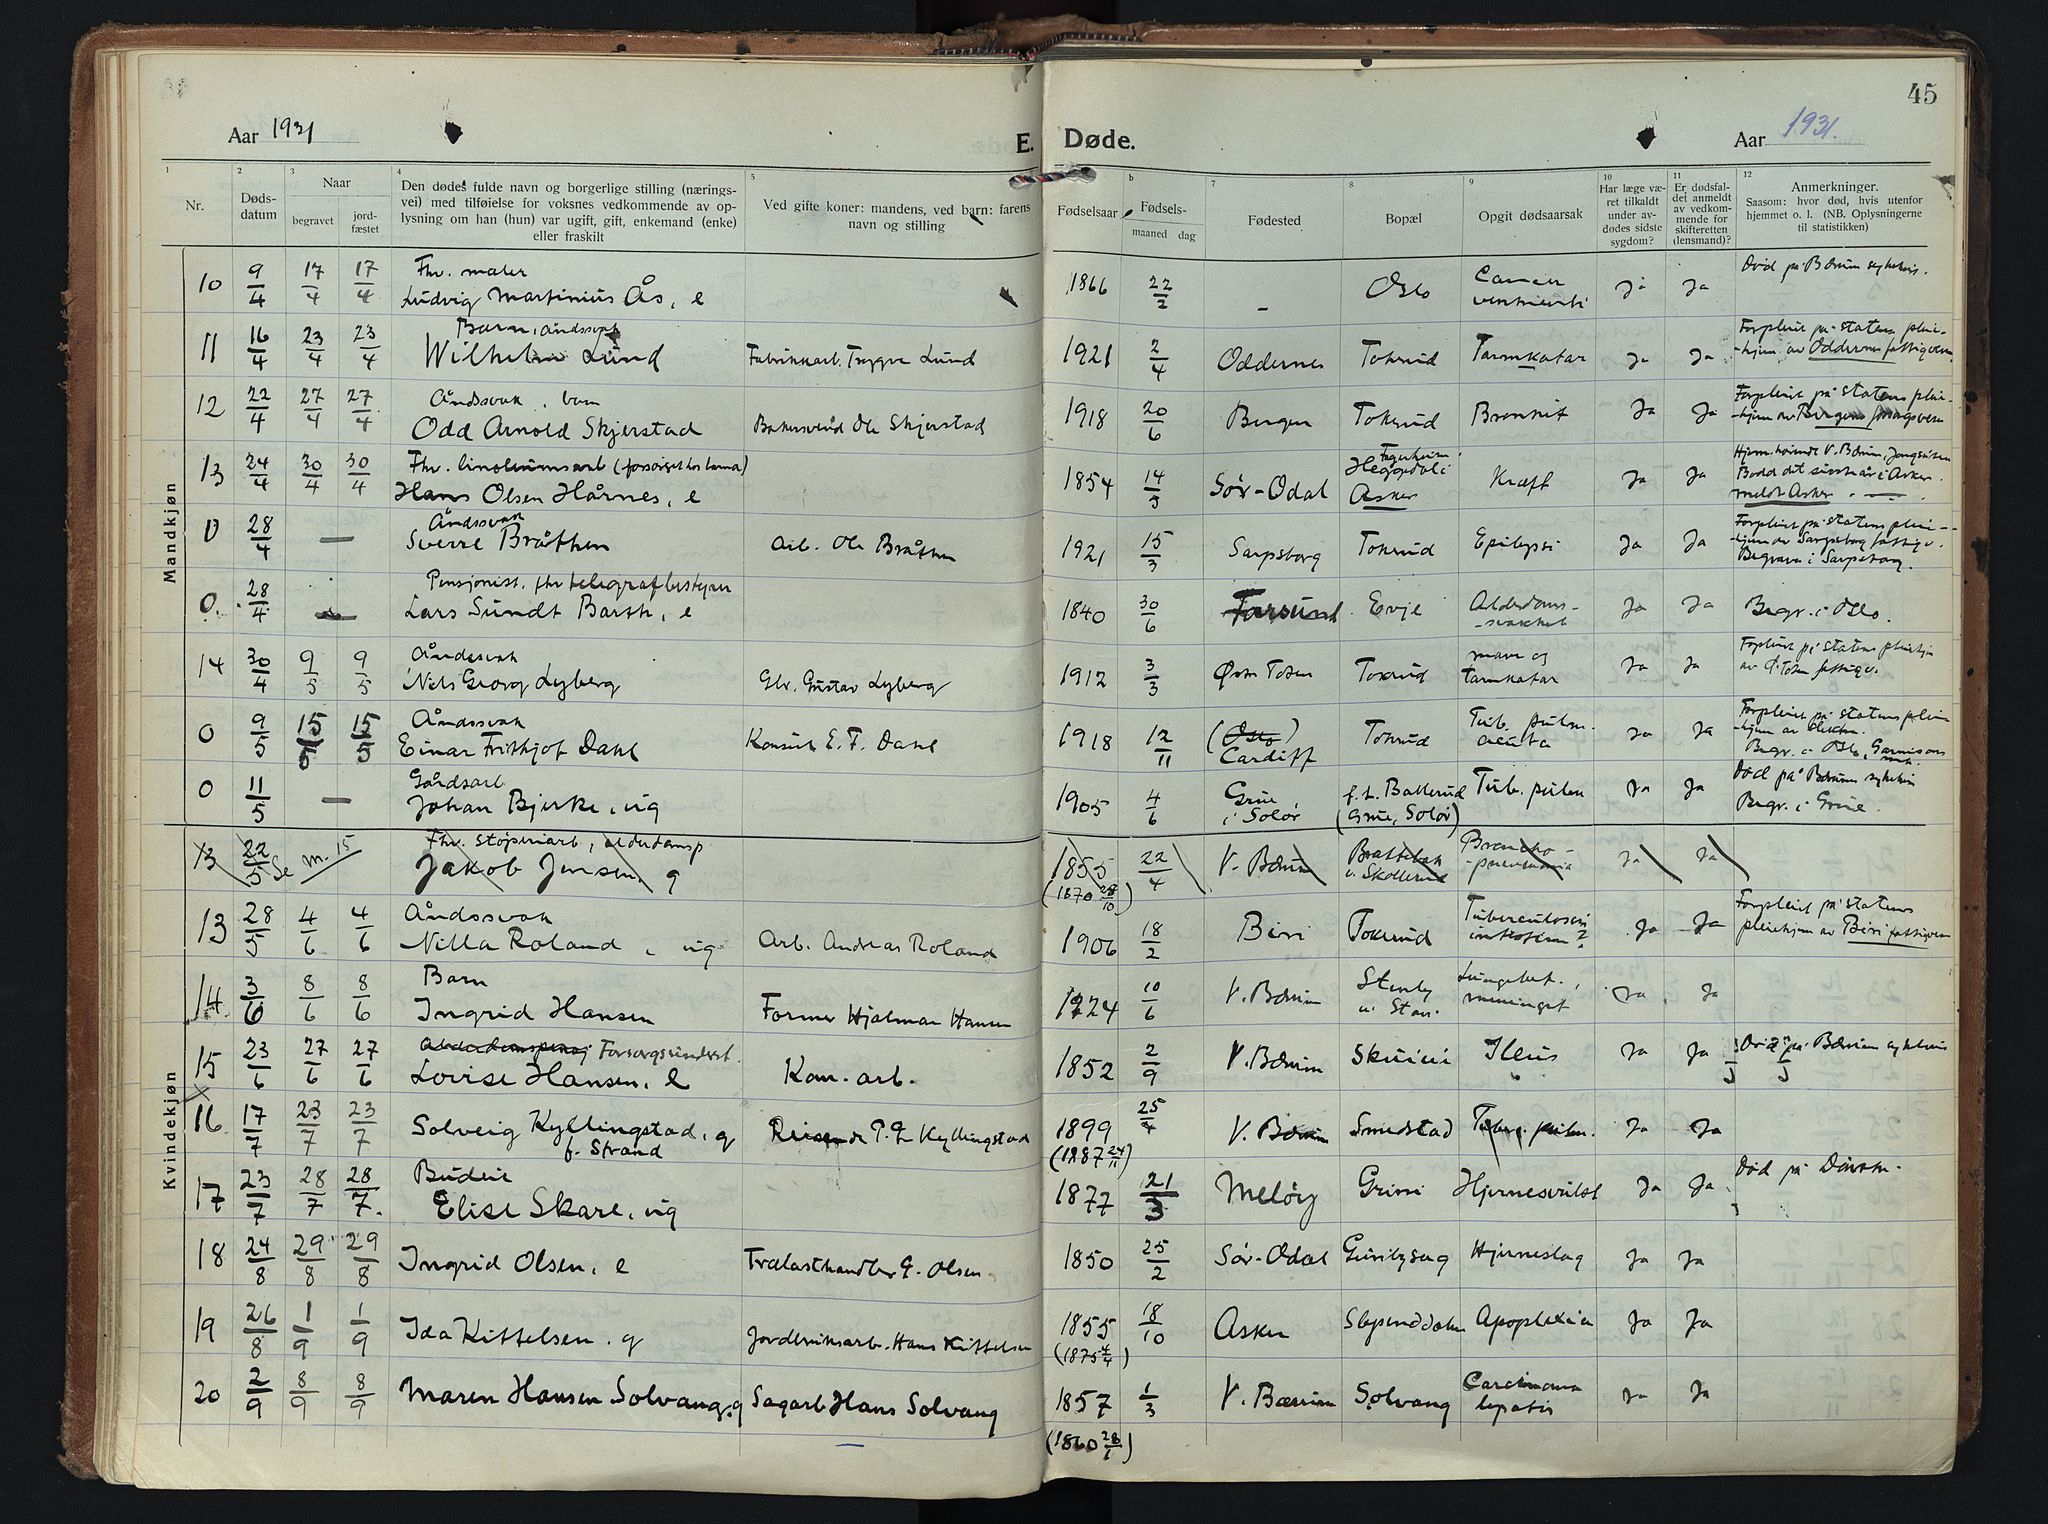 45
Aar 1931
E. Døde.
Aar 1931.
1 2 3 4 5 6 7 8 9 10 11 12
Nr.
Døds-
datum
Naar
begravet
jord-
fæstet
Den dødes fulde navn og borgerlige stilling (nærings-
vei) med tilføielse for voksnes vedkommende av op-
lysning om han (hun) var ugift, gift, enkemand (enke)
eller fraskilt
Ved gifte koner: mandens, ved barn: farens
navn og stilling
Fødselsaar
Fødsels-
maaned dag
Fødested
Bopæl
Opgit dødsaarsak
Har læge væ-
ret tilkaldt
under av-
dødes sidste
sygdom?
Er dødsfal-
det anmeldt
av vedkom-
mende for
skifteretten
(lensmand)?
Anmerkninger.
Saasom: hvor død, hvis utenfor
hjemmet o. l. (NB. Oplysningerne
til statistikken)
Mandkjøn
Fhv. maler
10 9/4 17/4 17/4 Ludvig Martinius Ås, e 1866 22/2 - Oslo Cancer ventriculi Ja Ja Død på Bærum sykehus.
Barn, åndssvak
11 16/4 23/4 23/4 Wilhelm Lund Fabrikkarb. Trygve Lund 1921 2/4 Oddernes Tokerud Tarmkatar Ja Ja Forpleiet på statens pleie-
-hjem av Oddernes fattigvesen
Åndssvak, barn
12 22/4 27/4 27/4 Odd Arnold Skjerstad Bakersvend Ole Skjerstad 1918 20/6 Bergen Tokerud Bronkit Ja Ja Forpleiet på statens pleie-
-hjem av Bergens forsorgsvesen
Fhv. linoleumsarb (forsørget hos barna)
13 24/4 30/4 30/4 Hans Olsen Hårnes, e 1854 14/5 Sør-Odal Heggedal i Asker Kræft Ja Ja Hjemhørende V. Bærum,
Bodd det siste år i Asker.
meldt Asker
Åndssvak
0 28/4 — Sverre Bråthen Arb. Ole Bråthen 1921 15/3 Sarpsborg Tokerud Epilepsi Ja Ja Forpleiet på statens pleie-
-hjem av Sarpsborg fattigv.
Begravet i Sarpsborg.
Pensjonist, fhv telegrafbestyrer
0. 28/4 — Lars Sundt Barth, e 1840 30/6 Farsund Evje Alderdoms-
-svakhet Ja Ja Begr. i Oslo.
Åndssvak
14 30/4 9/5 9/5 Nils Georg Lyberg Gbr. Gustav Lyberg 1912 3/3 Østr Toten Tokerud mave og
tarmkatar Ja Ja Forpleiet på statens pleiehjem
av Ø. Toten fattigv.
Åndssvak
0 9/5 15/5 15/5 Einar Frithjof Dahl Konsul E. F. Dahl 1918 12/11 (Oslo)
Cardiff Tokerud Tub. pulm.
acuta Ja Ja Forpleiet på statens pleie
-hjem av slekten.
Begr. i Oslo, Garnisons
Gårdsarb
0 11/5 — Johan Bjerke, ug 1905 4/6 Grue
i Solør f. t. Ballerud
(Grue, Solør) Tub. pulm Ja Ja Død på Bærum sykehus
Begr. i Grue.
Kvindekjøn
Fhv. støperiarb, alderdomsp
13 22/5 Se m. 15 Jakob Jensen, g 1855 22/4 V. Bærum Brattebak
v. Skollerud Broncho-
-pneumonia Ja Ja
(1870 28/10)
Åndssvak
13 28/5 4/6 4/6 Nilla Roland, ug Arb. Andreas Roland 1906 18/2 Biri Tokerud Tuberculosis
intestin? Ja Ja Forpleiet på statens
pleiehjem av Biri fattigvesen
Barn
14 3/6 8/6 8/6 Ingrid Hansen Former Hjalmar Hansen 1924 10/6 V. Bærum Stenby
v. Stav. Lungebet.,
meninget Ja Ja
Alderdomspensj Forsorgsunderst.
15 23/6 27/6 27/6 Lovise Hansen, e Kom. arb. 1852 2/9 V. Bærum Skuivei Ileus Ja Ja Død på Bærum sykehus
16 17/7 23/7 23/7 Solveig Kyllingstad, g
f. Strand Reisende P. L Kyllingstad 1899 25/4 V. Bærum Smedstad Tuberc. pulm. Ja Ja
(1887 24/11)
Budeie
17 23/7 28/7 28/7. Elise Skare, ug 1877 21/3 Meløy Grini Hjernesvulst Ja Ja Død på
18 24/8 29/8 29/8 Ingrid Olsen, e Trælasthandler G. Olsen 1850 25/2 Sør-Odal Gunibysag Hjerneslag Ja Ja
19 26/8 1/9 1/9 Ida Kittelsen. g Jordbruksarb. Hans Kittelsen 1855 18/10 Asker Slependdalen Apoplexia Ja Ja
(1875 4/4)
20 2/9 8/9 8/9 Maren Hansen Solvang, g Sagarb Hans Solvang 1857 1/3 V. Bærum Solvang Carcinoma
hepatis Ja Ja
(1860 28/1)